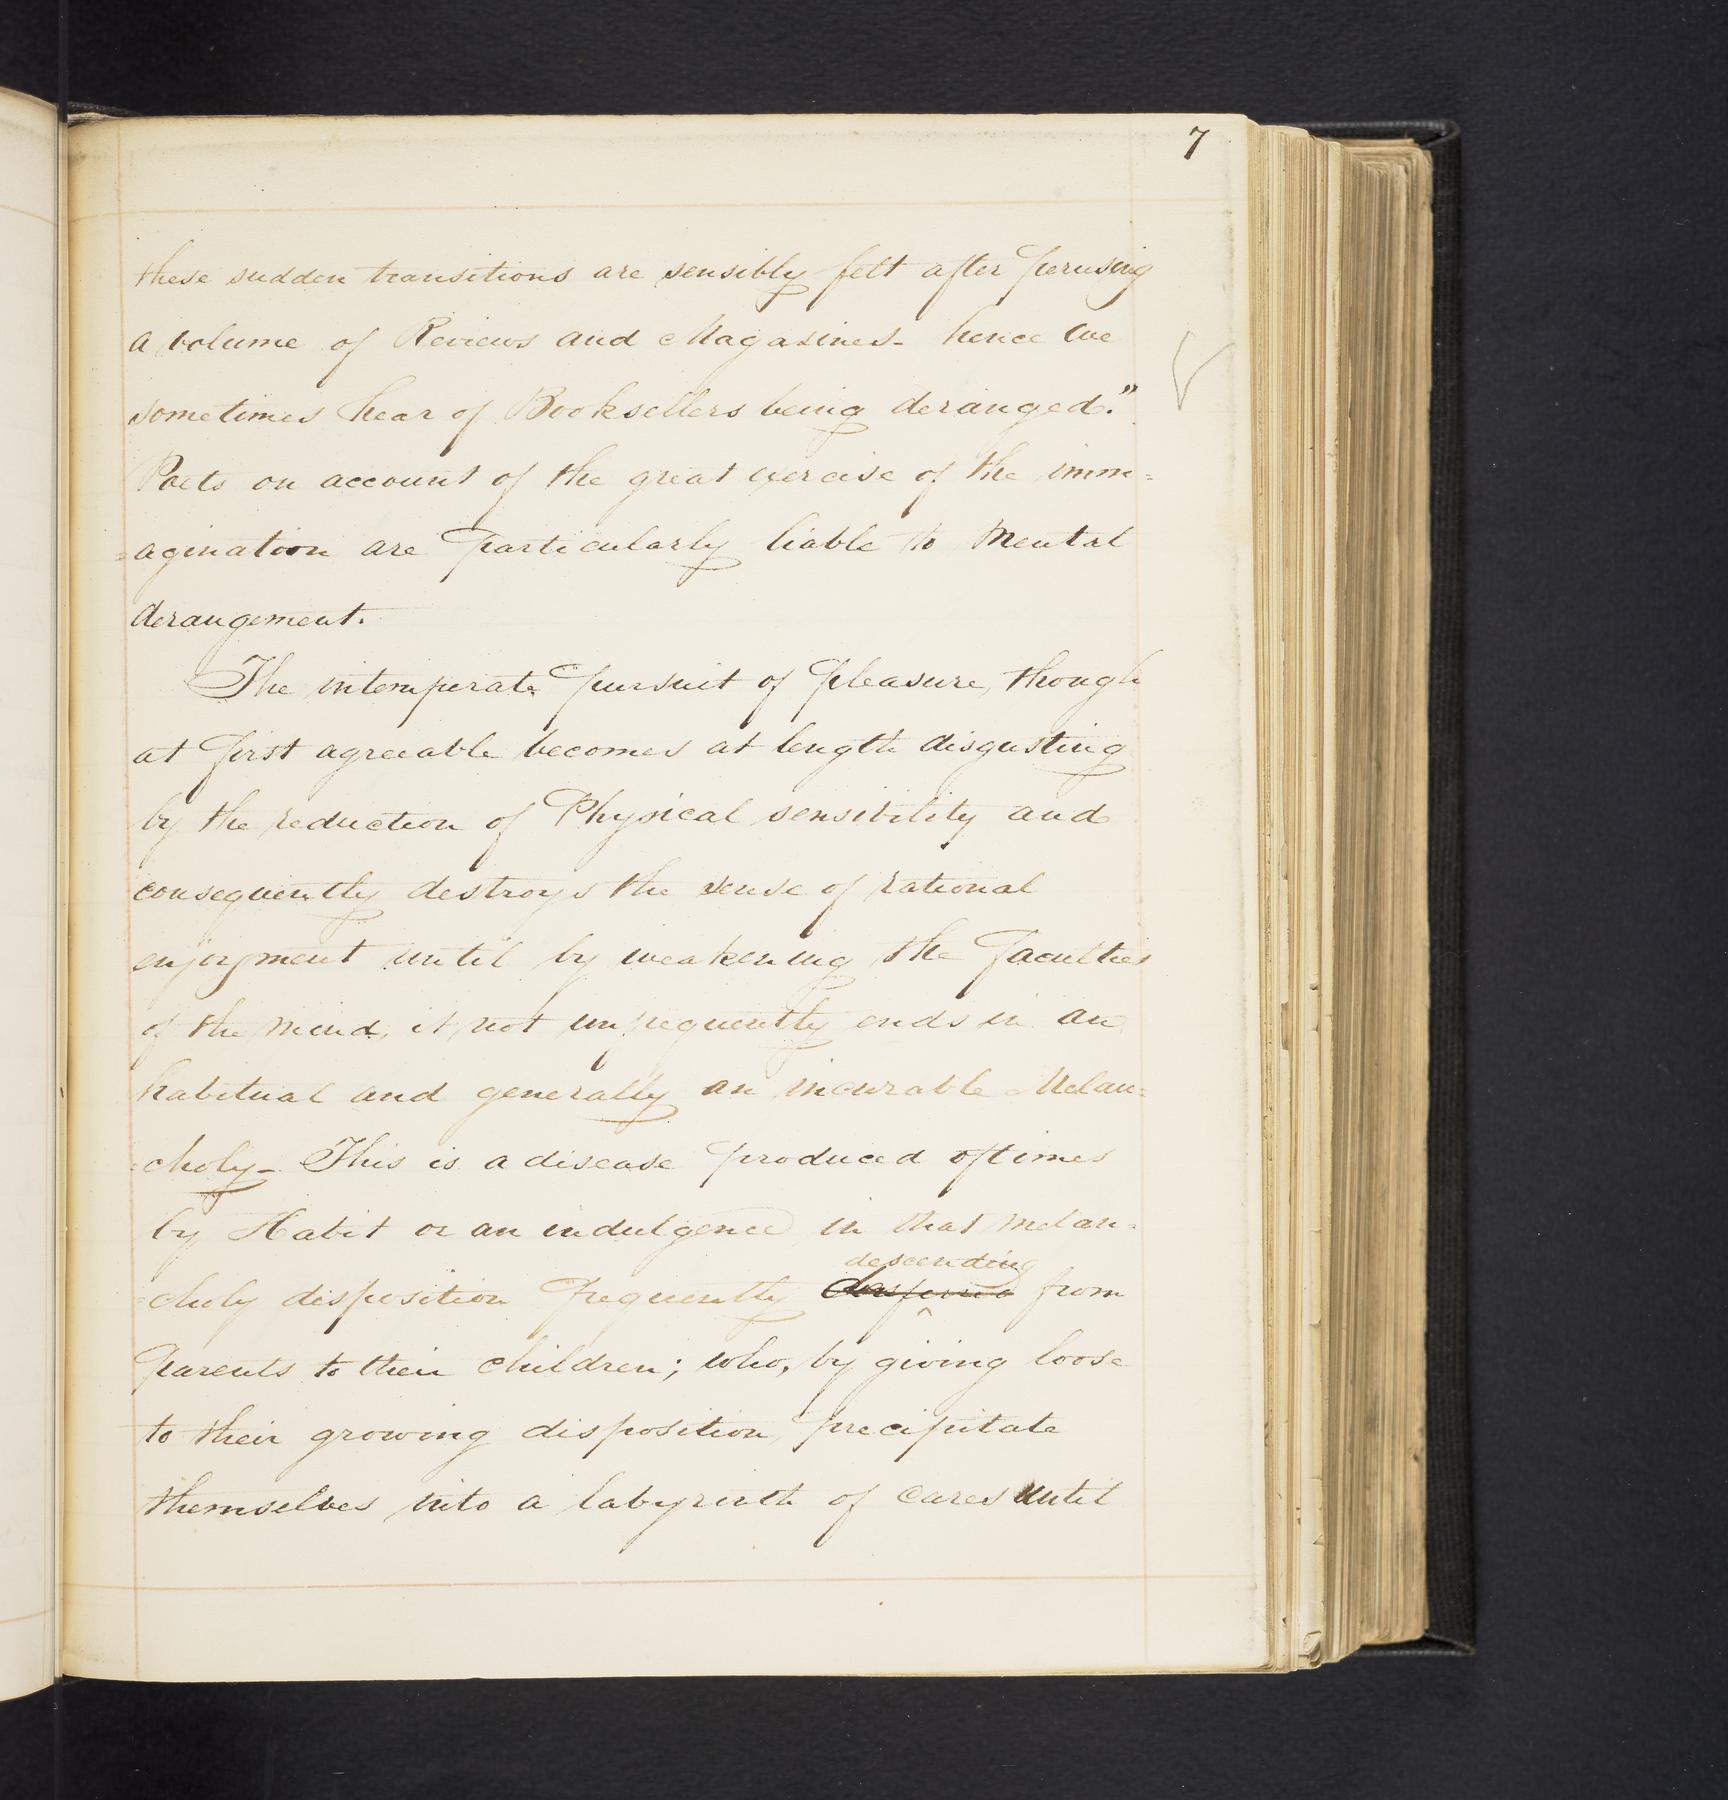 7
these sudden transitions are sensibly felt after perusing
a volume of Reviews and Magasines - hence we
sometimes hear of Booksellers being deranged."
Poets on account of the great exercise of the imm=
=agination are particularly liable to Mental
derangement.
The intemperate pursuit of pleasure, though
at first agreeable becomes at length disgusting
by the reduction of Physical sensibility and
consequently destroys the sense of rational
enjoyment until by weakening the Faculties
of the mind, it not unfrequently ends in an
habitual and generally an incurable Melan=
=choly - This is a disease produced oftimes
by Habit or an indulgence in that melan=
descending
choly disposition frequently from
parents to their children; who, by giving loose
to their growing disposition, precipitate
themselves into a labyrinth of cares until